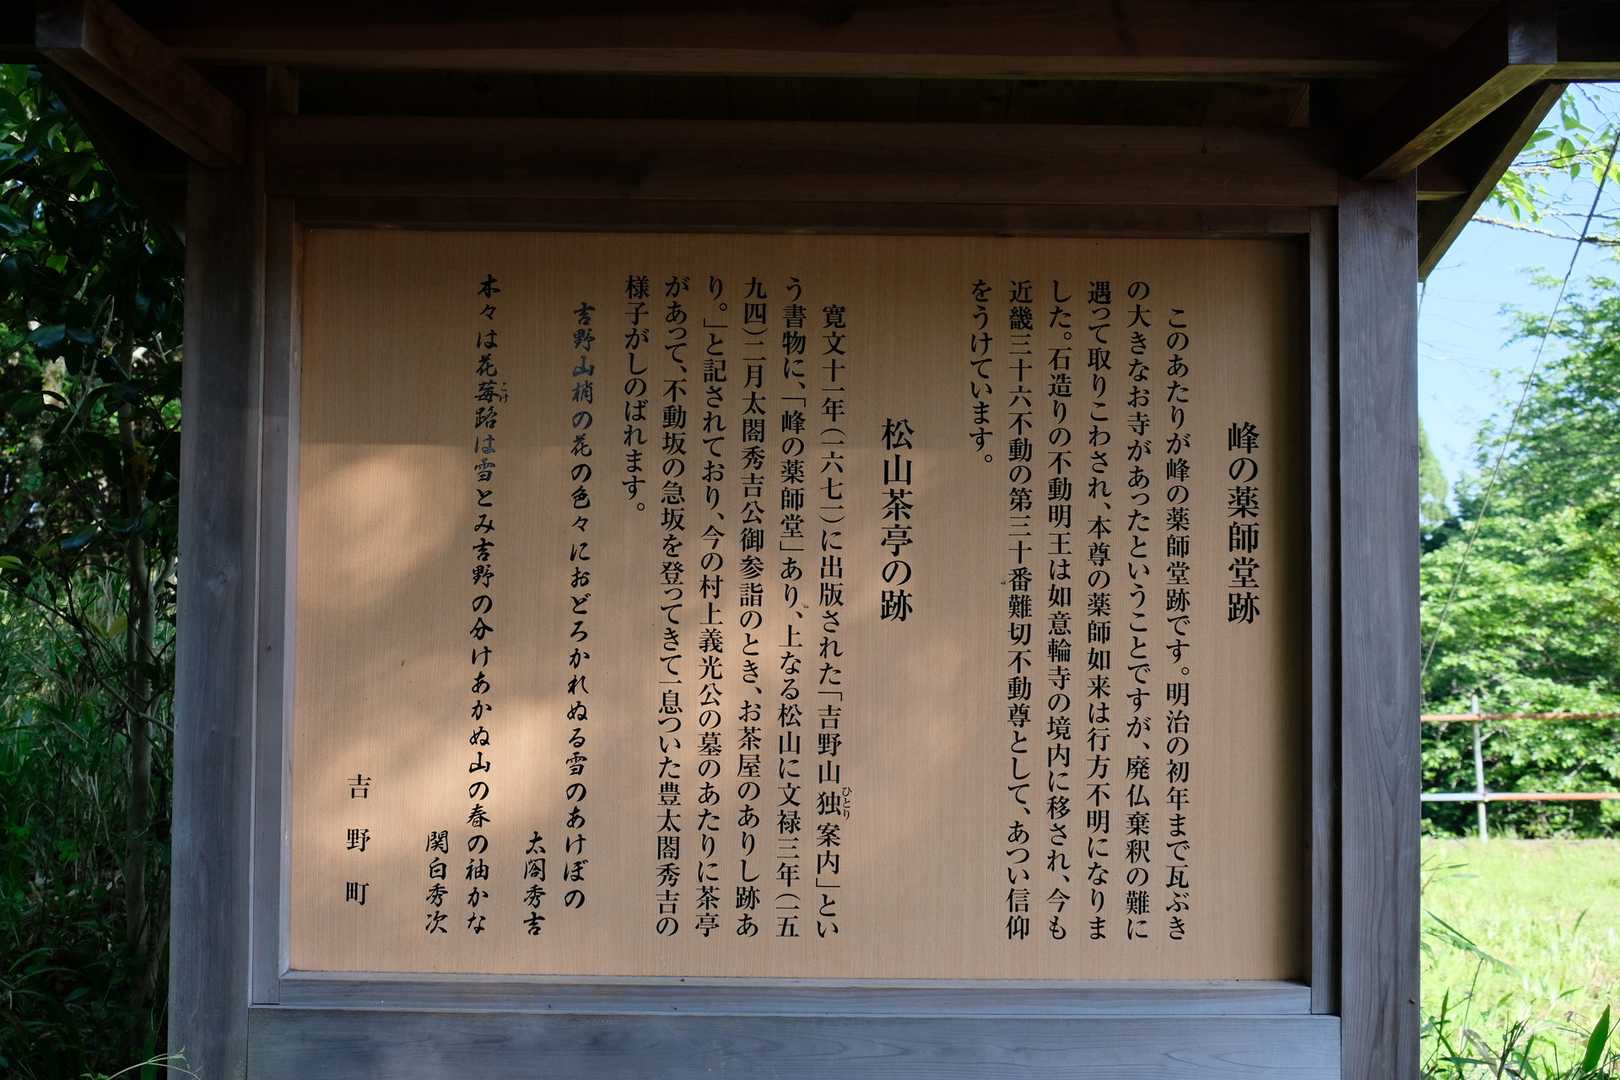 峰の薬師堂跡
このあたりが峰の薬師堂跡です。明治の初年まで瓦ぶき
の大きなお寺があったということですが、廃仏棄釈の難に
遇って取りこわされ、本尊の薬師如来は行方不明になりま
した。石造りの不動明王は如意輪寺の境内に移され、今も
近畿三十六不動の第三十番難切不動尊として、あつい信仰
をうけています。
松山茶亭の跡
寛文十一年（一六七一）に出版された「吉野山独案内」とい
ひとり
う書物に、「峰の薬師堂」あり、上なる松山に文禄三年（一五
九四）二月太閤秀吉公御参詣のとき、お茶屋のありし跡あ
り。」と記されており、今の村上義光公の墓のあたりに茶亭
があって、不動坂の急坂を登ってきて一息ついた豊太閤秀吉の
様子がしのばれます。
吉野山梢の花の色々におどろかれぬる雪のあけぼの
太閤秀吉
木々は花苺路は雪とみ吉野の分けあかぬ山の春の袖かな
こけ
関白秀次
吉野町